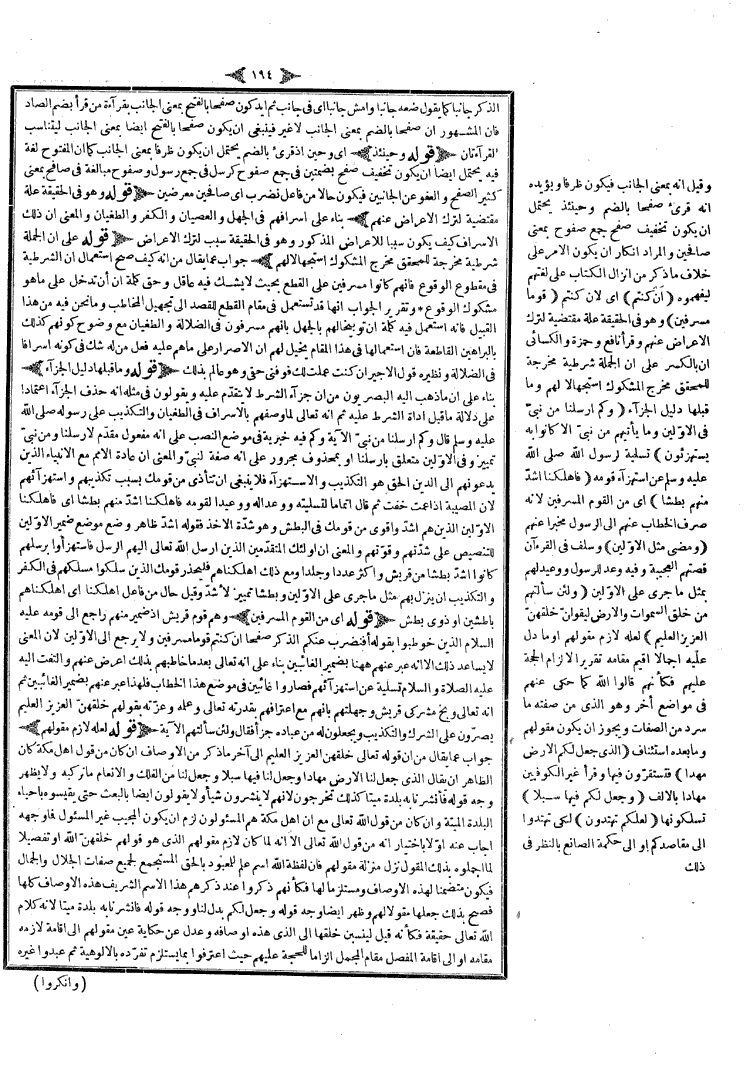 ١٩٤
الذكر جانبا كما يقول ضعه جانبا وامش جانبا اى فى جانب ثم ايد كون صفحا بالفتح بمعنى الجانب بقراءة من قرأ بضم الصاد
فان المشهور ان صفحا بالضم بمعنى الجانب لاغير فينبغى ان يكون صفحا بالفتح ايضا بمعنى الجانب ليتناسب
القراءتان قوله وحينئذ اى وحين اذ قرئ بالضم يحتمل ان يكون ظرفا بمعنى الجانب كما ان المفتوح لغة
فيه يحتمل ايضا ان يكون تخفيف صفح بضمتين فى جمع صفوح كرسل فى جمع رسول وصفوح مبالغة فى صافح بمعنى
كثير الصفح والعفو عن الجانين فيكون حالا من فاعل نضرب اى صافحين معرضين قوله وهو فى الحقيقة علة
مقتضية لترك الاعراض عنهم بناء على اسرافهم فى الجهل والعصيان والكفر والطغيان والمعنى ان ذلك
الاسراف كيف يكون سببا للاعراض المذكور وهو فى الحقيقة سبب لترك الاعراض قوله على ان الجملة
شرطية مخرجة للمحقق مخرج المشكوك استجهالا لهم جواب عما يقال من انه كيف صح استعمال ان الشرطية
فى مقطوع الوقوع فانهم كانوا مسرفين على القطع بحيث لا يشك فيه عاقل وحق كلمة ان أن تدخل على ما هو
مشكوك الوقوع وتقرير الجواب انها قد تستعمل فى مقام القطع للقصد الى تجهيل المخاطب وما نحن فيه من هذا
القبيل فانه استعمل فيه كلمة ان توبيخا لهم بالجهل بانهم مسرفون فى الضلالة والطغيان مع وضوح كونهم كذلك
بالبراهين القاطعة فان استعمالها فى هذا المقام يخيل لهم ان الاصرار على ما هم عليه فعل من له شك فى كونه اسرافا
فى الضلالة ونظيره قول الاجير ان كنت عملت لك فوفنى حتى وهو عالم بذلك قوله وما قبلها دليل الجزاء
بناء على ان ما ذهب اليه البصريون من ان جزاء الشرط لا يتقدم عليه ويقولون فى مثله انه حذف الجزاء اعتمادا
على دلالة ما قبل اداة الشرط عليه ثم انه تعالى لما وصفهم بالاسراف فى الطغيان والتكذيب على رسوله صلى الله
عليه وسلم قال وكم ارسلنا من نبى الآية وكم فيه خبرية فى موضع النصب على انه مفعول مقدم لارسلنا ومن نبى
تمييز وفى الاولين متعلق بارسلنا او بمحذوف مجرور على انه صفة لنبى والمعنى ان عادة الامم مع الانبياء الذين
يدعونهم الى الدين الحق هو التكذيب والاستهزاء فلا ينبغى ان تتأذى من قومك بسبب تكذيبهم واستهزائهم
لان المصيبة اذا عمت خفت ثم قال اتماما لتسليته ووعدا له ووعيدا لقومه فاهلكنا اشد منهم بطشا اى فاهلكنا
الاولين الذين هم اشد واقوى من قومك فى البطش وهو شدة الاخذ فقوله اشد ظاهر وضع موضع ضمير الاولين
للتنصيص على شدتهم وقوتهم والمعنى ان اولئك المتقدمين الذين ارسل الله تعالى اليهم الرسل فاستهزأوا برسلهم
كانوا اشد بطشا من قريش واكثر عددا وجلدا ومع ذلك اهلكناهم فليحذر قومك الذين سلكوا مسلكهم فى الكفر
والتكذيب ان ينزل بهم مثل ما جرى على الاولين وبطشا تمييز لاشد وقيل حال من فاعل اهلكنا اى اهلكناهم
باطشين او ذوى بطش قوله اى من القوم المسرفين وهم قوم قريش اذ ضمير منهم راجع الى قومه عليه
السلام الذين خوطبوا بقوله أفنضرب عنكم الذكر صفحا ان كنتم قوما مسرفين ولا يرجع الى الاولين لان المعنى
لا يساعد ذلك الا انه عبر عنهم ههنا بضمير الغائبين بناء على انه تعالى بعد ما خاطبهم بذلك اعرض عنهم والتفت اليه
عليه الصلاة والسلام تسلية عن استهزائهم فصاروا غائبين فى موضع هذا الخطاب فلهذا عبر عنهم بضمير الغائبين ثم
انه تعالى وبخ مشركى قريش وجهلهم بانهم مع اعترافهم بقدرته تعالى وعلمه وعزته بقولهم خلقهن العزيز العليم
يصرون على الشرك والتكذيب ويجعلون له من عباده جزأ فقال ولئن سألتهم الآية قوله لعله لازم مقولهم
جواب عما يقال من ان قوله تعالى خلقهن العزيز العليم الى آخر ما ذكر من الاوصاف ان كان من قول اهل مكة كان
الظاهر ان يقال الذى جعل لنا الارض مهادا وجعل لنا فيها سبلا وجعل لنا من الفلك والانعام ما نركبه ولا يظهر
وجه قوله فأنشرنا به بلدة ميتا كذلك تخرجون لانهم لا ينشرون شيأ ولا يقولون ايضا بالبعث حتى يقيسوه باحياء
البلدة الميتة وان كان من قول الله تعالى مع ان اهل مكة هم المسئولون لزم ان يكون المجيب غير المسئول فاوجهه
اجاب عنه اولا باختيار انه من قول الله تعالى الا انه لما كان لازم مقولهم الذى هو قولهم خلقهن الله او تفصيلا
لما اجملوه بذلك المقول نزل منزلة مقولهم فان لفظة الله اسم علم للمعبود بالحق المستجمع لجميع صفات الجلال والجمال
فيكون متضمنا لهذه الاوصاف ومستلزما لها فكأنهم ذكروا عند ذكرهم هذا الاسم الشريف هذه الاوصاف كلها
فصح بذلك جعلها مقولا لهم وظهر ايضا وجه قوله وجعل لكم بدل لنا ووجه قوله فانشرنا به بلدة ميتا لانه كلام
الله تعالى حقيقة فكأنه قيل لينسبن خلقها الى الذى هذه اوصافه وعدل عن حكاية عين مقولهم الى اقامة لازمه
مقامه او الى اقامة المفصل مقام المجمل الزاما للحجة عليهم حيث اعترفوا بما يستلزم تفرده بالالوهية ثم عبدوا غيره
(وانكروا)
وقيل انه بمعنى الجانب فيكون ظرفا ويؤيده
انه قرئ صفحا بالضم وحينئذ يحتمل
ان يكون تخفيف صفح جمع صفوح بمعنى
صافحين والمراد انكار ان يكون الامر على
خلاف ما ذكر من انزال الكتاب على لغتهم
ليفهموه (أن كنتم) اى لان كنتم (قوما
مسرفين) وهو فى الحقيقة علة مقتضية لترك
الاعراض عنهم وقرأ نافع وحمزة والكسائى
ان بالكسر على ان الجملة شرطية مخرجة
للمحقق مخرج المشكوك استجهالا لهم وما
قبلها دليل الجزاء (وكم ارسلنا من نبى
فى الاولين وما يأتيهم من نبى الا كانوا به
يستهزئون) تسلية لرسول الله صلى الله
عليه وسلم عن استهزاء قومه (فاهلكنا اشد
منهم بطشا) اى من القوم المسرفين لانه
صرف الخطاب عنهم الى الرسول مخبرا عنهم
(ومضى مثل الاولين) وسلف فى القرءآن
قصتهم العجيبة وفيه وعد للرسول ووعيد لهم
بمثل ما جرى على الاولين (ولئن سألتهم
من خلق السموات والارض ليقولن خلقهن
العزيز العليم) لعله لازم مقولهم او ما دل
عليه اجمالا اقيم مقامه تقريرا لالزام الحجة
عليهم فكأنهم قالوا الله كما حكى عنهم
فى مواضع أخر وهو الذى من صفته ما
سرد من الصفات ويجوز ان يكون مقولهم
وما بعده استئناف (الذى جعل لكم الارض
مهدا) فتستقرون فيها وقرأ غير الكوفيين
مهادا بالالف (وجعل لكم فيها سبلا)
تسلكونها (لعلكم تهتدون) لكى تهتدوا
الى مقاصدكم او الى حكمة الصانع بالنظر فى
ذلك